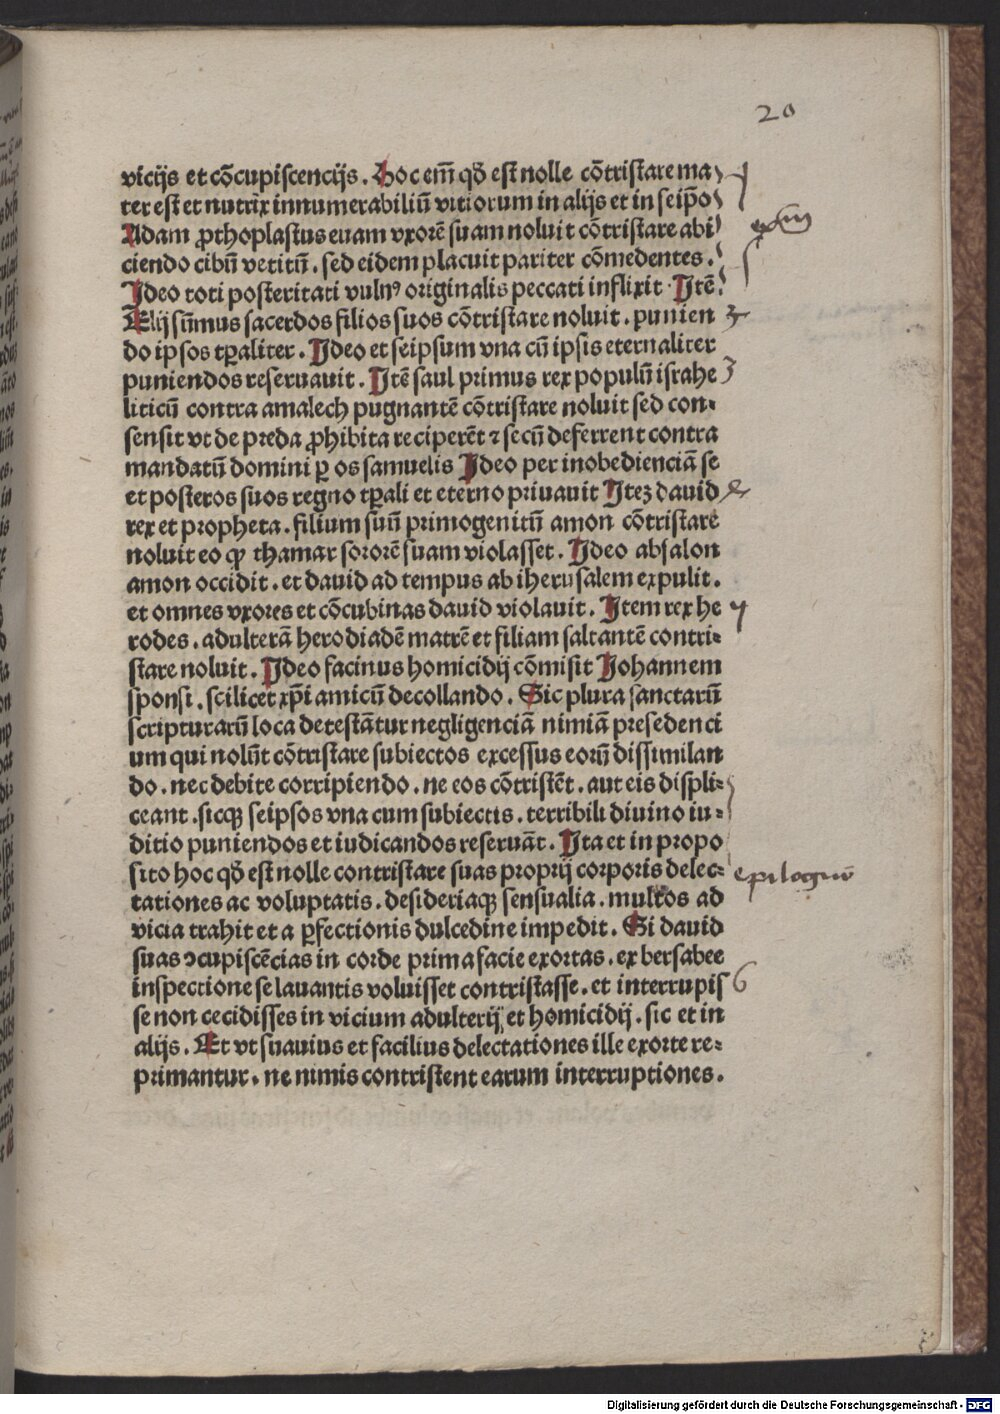 20
vicijs et cõcupiscencijs. Hoc em̃ qð est nolle cõtristare ma
ter est et nutrix innumerabiliũ vitiorum in alijs et in seip̃o
Adam ꝓthoplastus euam vxorẽ suam noluit cõtristare abi
ciendo cibũ vetitũ. sed eidem placuit pariter cõmedentes.
Ideo toti posteritati vulnꝰ originalis peccati inflixit. Itẽ
Elij sũmus sacerdos filios suos cõtristare noluit. punien 3
do ipsos tꝑaliter. Ideo et seipsum vna cũ ipsis eternaliter
puniendos reseruauit. Itẽ saul primus rex populũ israhe 3
liticũ contra amalech pugnantẽ cõtristare noluit sed con⸗
sensit vt de preda ꝓhibita reciperẽt ⁊ secũ deferrent contra
mandatũ domini ꝑ os samuelis Ideo per inobedienciã se
et posteros suos regno tꝑali et eterno priuauit Iteꝫ dauid
rex et propheta. filium suũ primogenitũ amon cõtristare
noluit eo ꝙ thamar sororẽ suam violasset. Ideo absalon
amon occidit. et dauid ad tempus ab iherusalem expulit.
et omnes vxores et cõcubinas dauid violauit. Item rex he
rodes. adulterã herodiadẽ matrẽ et filiam saltantẽ contri⸗
stare noluit. Ideo facinus homicidij cõmisit Iohannem
sponsi. scilicet xp̃i amicũ decollando. Sic plura sanctarũ
scripturarũ loca detestãtur negligenciã nimiã presedenci
um qui nolũt cõtristare subiectos excessus eorũ dissimilan
do. nec debite corripiendo. ne eos cõtristẽt. aut eis displi⸗
ceant. sicqꝫ seipsos vna cum subiectis. terribili diuino iu⸗
ditio puniendos et iudicandos reseruãt. Ita et in propo
sito hoc qð est nolle contristare suas proprij corporis delec⸗ epilogus
tationes ac voluptatis. desideriaqꝫ sensualia. multos ad
vicia trahit et a ꝑfectionis dulcedine impedit. Si dauid
suas ↄcupiscẽcias in corde prima facie exortas. ex bersabee
inspectione se lauantis voluisset contristasse. et interrupis 6
se non cecidisses in vicium adulterij et homicidij. sic et in
alijs. Et vt suauius et facilius delectationes ille exorte re⸗
primantur. ne nimis contristent earum interruptiones.
Digitalisierung gefördert durch die Deutsche Forschungsgemeinschaft - DFG